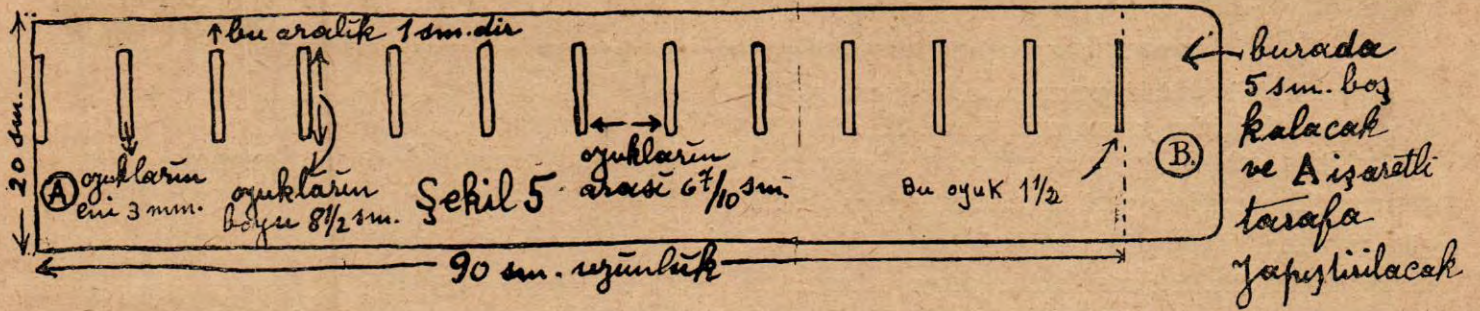 ↑ bu aralık 1 sm. dir
20 sm.
A
oyukların
eni 3 mm.
oyukların
boyu 8½ sm.
Şekil 5
oyukların
arası 6 7/10 sm.
Bu oyuk 1½
B.
burada
5 sm. boş
kalacak
ve A işaretli
tarafa
Yapıştırılacak
90 sm. uzunluk